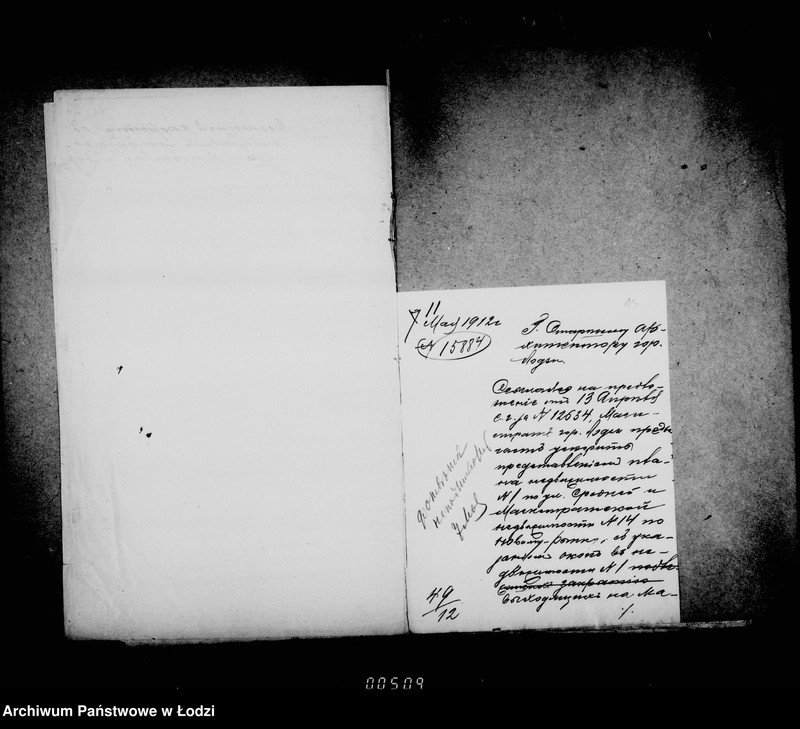 11
7 Мая 1912 г
№ 15884
Г. Старшему Ар-
хитектору гор.
Лодзи.
Ссылаясь на предло-
жение от 13 Апреля
с. г. за № 12634, Маги-
стратъ гор. Лодзи предла-
гаетъ ускорить
представленiемъ пла-
на недвижимости
№ 1 по ул. Средней и
Магистратской
недвижимости № 14 по
Новому-рынку, съ ука-
занiемъ оконъ въ не-
движимости № 1
закрытiю
выходящихъ на Ма-
./.
49
12
00509
Archiwum Państwowe w Łodzi